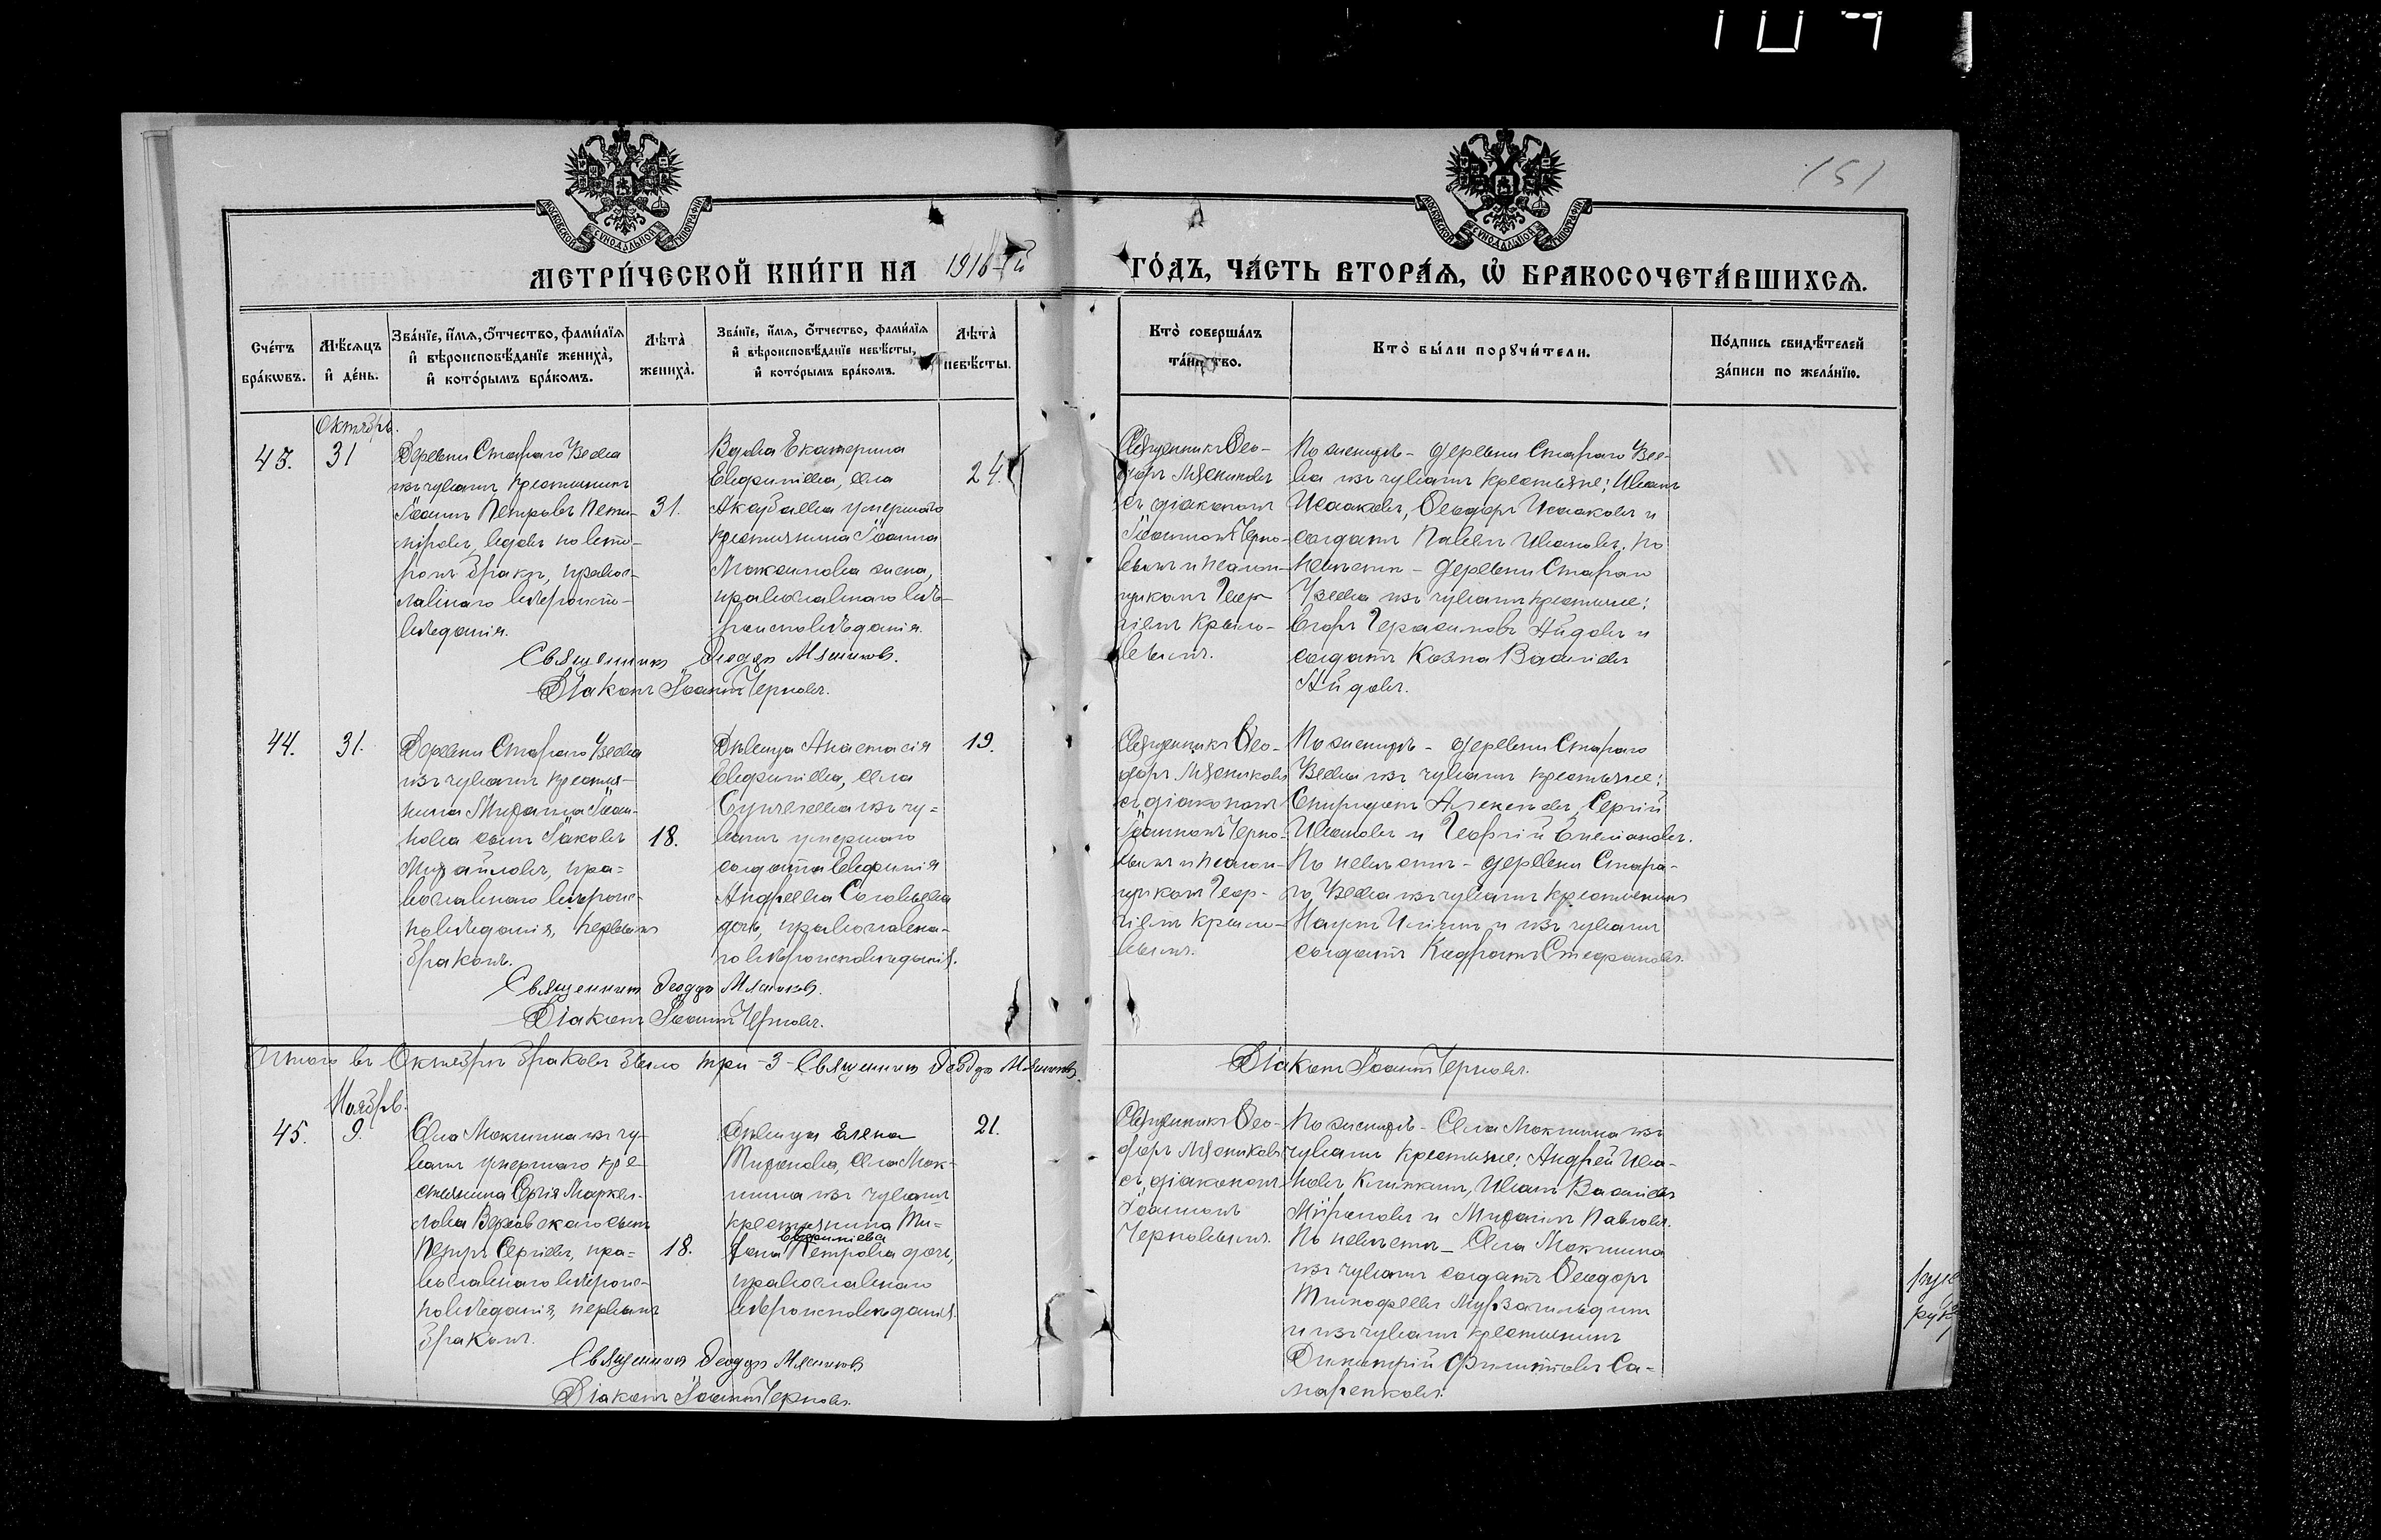 151
МОСКОВСКОЙ СѴНОДАЛЬНОЙ ТИПОГРАФІИ
МОСКОВСКОЙ СѴНОДАЛЬНОЙ ТИПОГРАФІИ
МЕТРИ́ЧЕСКОЙ КНИ́ГИ НА 1916-й ГО́ДЪ, ЧА́СТЬ ВТОРА́Ѧ, Ѡ҆ БРАКОСОЧЕТА́ВШИХСѦ.
Сче́тъ бра́кѡвъ.
Мѣ́сяцъ и҆ де́нь.
Зва́нїе, и҆́мѧ, ѻ҆́тчество, фами́лїѧ
и҆ вѣроисповѣ́данїе жениха̀,
и҆ кото́рымъ бра́комъ.
Лѣта̀ жениха̀.
Зва́нїе, и҆́мѧ, ѻ҆́тчество, фами́лїѧ
и҆ вѣроисповѣ́данїе невѣ́сты,
и҆ кото́рымъ бра́комъ.
Лѣта̀ невѣ́сты.
Кто̀ соверша́лъ
та́инство.
Кто̀ бы́ли порꙋчи́тели.
По́дпись свидѣ́телей
за́писи по жела́нїю.
Октябрь.
43.
31
Деревни Стараго Узеева
изъ чувашъ крестьянинъ
Іоаннъ Петровъ
вдовъ по вто-
ромъ бракѣ, правос-
лавнаго вѣроиспо-
вѣданія.
31.
Вдова Екатерина
Евфиміева, села
умершаго
крестьянина Іоанна
Максимова жена,
православнаго вѣ-
роисповѣданія.
24.
Священникъ Ѳео-
доръ Мясниковъ
съ діакономъ
Іоанномъ Черно-
вымъ и псалом-
щикомъ Геор-
гіемъ Крыло-
вымъ.
По женихѣ - деревни Стараго Узее-
ва изъ чувашъ крестьяне: Иванъ
Исааковъ, Ѳеодоръ Исааковъ и
солдатъ Павелъ Ивановъ. По
невѣстѣ - деревни Стараго
Узеева изъ чувашъ крестьяне:
Егоръ Герасимовъ Айдовъ и
солдатъ Козма Васильевъ
Айдовъ.
Священникъ Ѳеодоръ Мясниковъ.
Діаконъ Іоаннъ Черновъ.
44.
31.
Деревни Стараго Узеева
изъ чувашъ крестья-
нина Михаила Іоан-
нова сынъ Іаковъ
Михайловъ, пра-
вославнаго вѣроис-
повѣданія, первымъ
бракомъ.
18.
Дѣвица Анастасія
Евфиміева, села
изъ чу-
вашъ умершаго
солдата Евфимія
Андреева Соловьева
дочь, православна-
го вѣроисповѣданія.
19.
Священникъ Ѳео-
доръ Мясниковъ
съ діакономъ
Іоанномъ Черно-
вымъ и псалом-
щикомъ Геор-
гіемъ Крыло-
вымъ.
По женихѣ - деревни Стараго
Узеева изъ чувашъ крестьяне:
Спиридонъ Алексѣевъ, Сергій
Ивановъ и Георгій Емеліановъ.
По невѣстѣ - деревни Стара-
го Узеева изъ чувашъ крестьянинъ
Наумъ Ильинъ и изъ чувашъ
солдатъ Кодратъ Стефановъ.
Священникъ Ѳеодоръ Мясниковъ.
Діаконъ Іоаннъ Черновъ.
Итого въ Октябрѣ браковъ было три -3- Священникъ Ѳеодоръ Мясниковъ.
Діаконъ Іоаннъ Черновъ.
Ноябрь.
45.
9.
Села Мокшина изъ чу-
вашъ умершаго кре-
стьянина Сергія Маркел-
лова сынъ
Петръ Сергіевъ, пра-
вославнаго вѣроис-
повѣданія, первымъ
бракомъ.
18.
Дѣвица Елена
села Мок-
шина изъ чувашъ
крестьянина
Петрова дочь,
православнаго
вѣроисповѣданія.
21.
Священникъ Ѳео-
доръ Мясниковъ
съ діакономъ
Іоанномъ
Черновымъ.
По женихѣ - Села Мокшина изъ
чувашъ крестьяне: Андрей Ива-
новъ Климкинъ, Иванъ Васильевъ
Мироновъ и Михаилъ Павловъ.
По невѣстѣ - Села Мокшина
изъ чувашъ солдатъ Ѳеодоръ
Тимофеевъ
и изъ чувашъ крестьянинъ
Димитрій Филипповъ Са-
маренковъ.
Священникъ Ѳеодоръ Мясниковъ
Діаконъ Іоаннъ Черновъ.